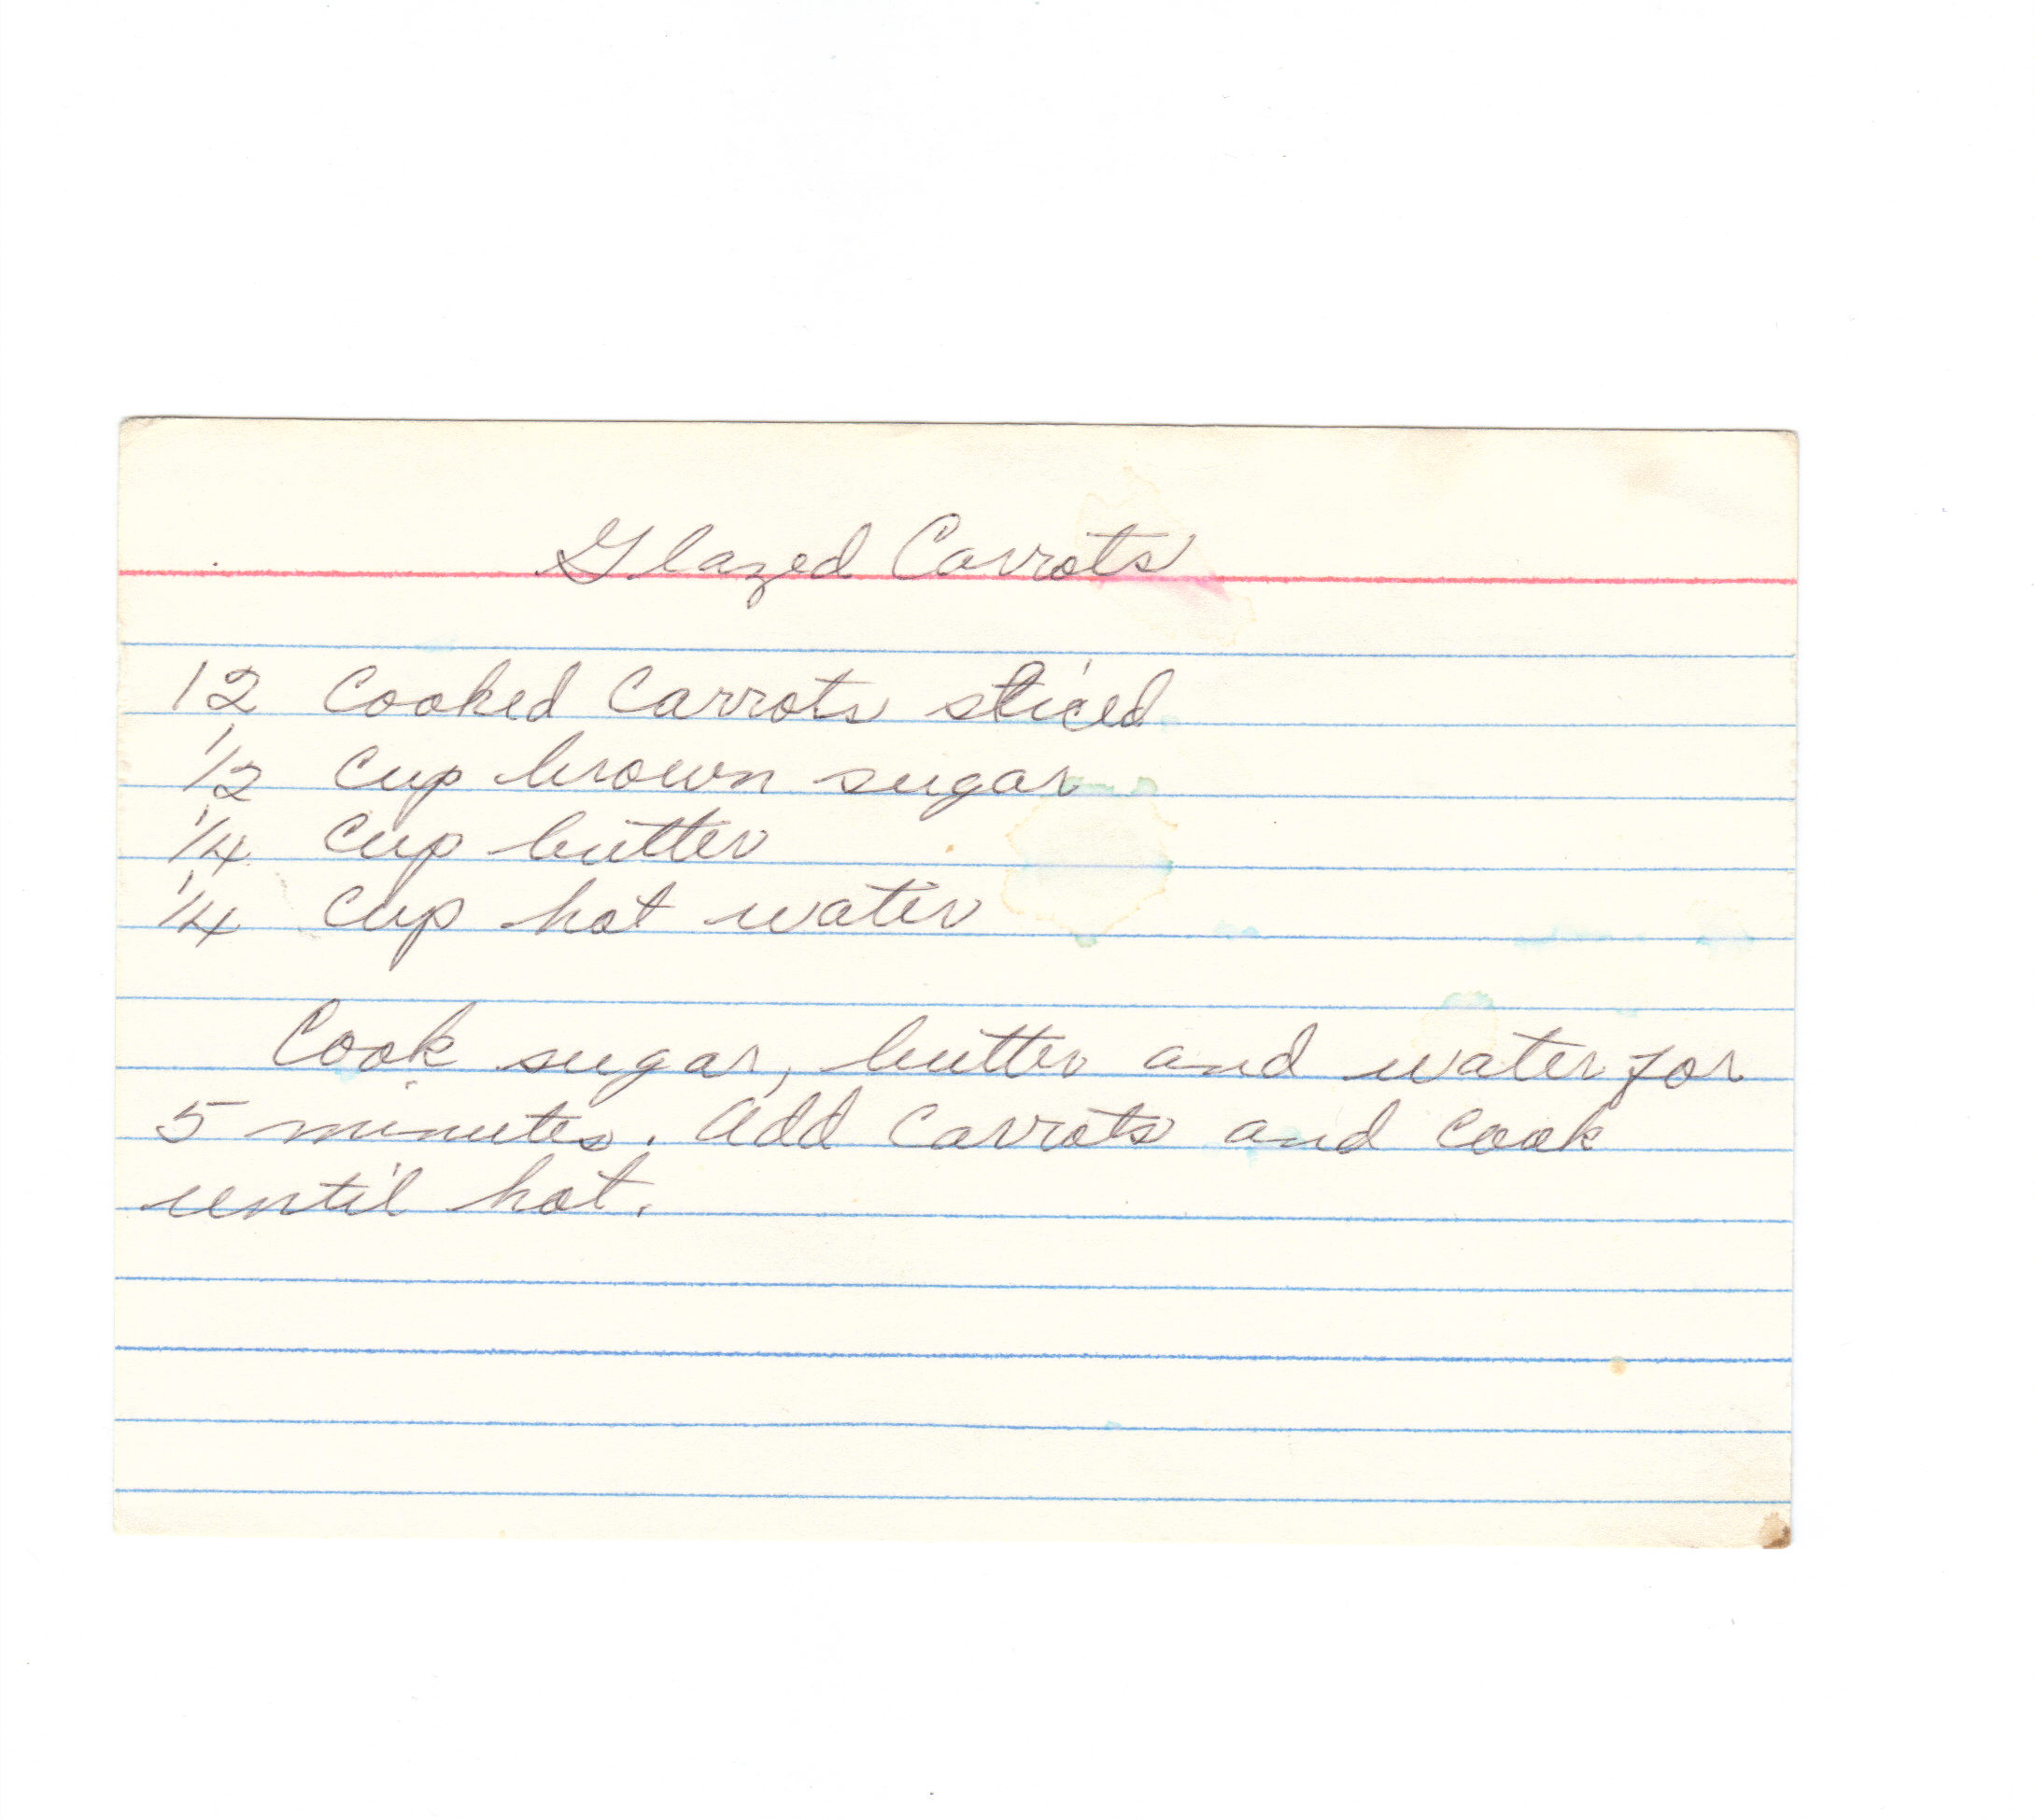 Glazed Carrots
12 Cooked Carrots sliced
1/2 Cup brown sugar
1/4 Cup butter
1/4 Cup hot water
Cook sugar, butter and water for
5 minutes. Add Carrots and Cook
until hot.